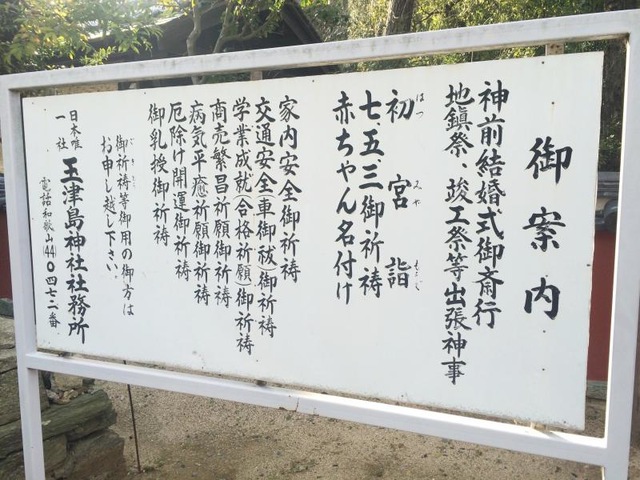 御案内
神前結婚式御斎行
地鎮祭、竣工祭等出張神事
初宮詣
はつみやもうで
七五三御祈祷
赤ちゃん名付け
家内安全御祈祷
交通安全(車御祓)御祈祷
学業成就(合格祈願)御祈祷
商売繁昌祈願御祈祷
病気平癒祈願御祈祷
厄除け開運御祈祷
御乳授御祈祷
御祈祷等御用の御方は
ごきとう
お申し越し下さい。
日本唯一社
玉津島神社社務所
電話和歌山(44)〇四七二番